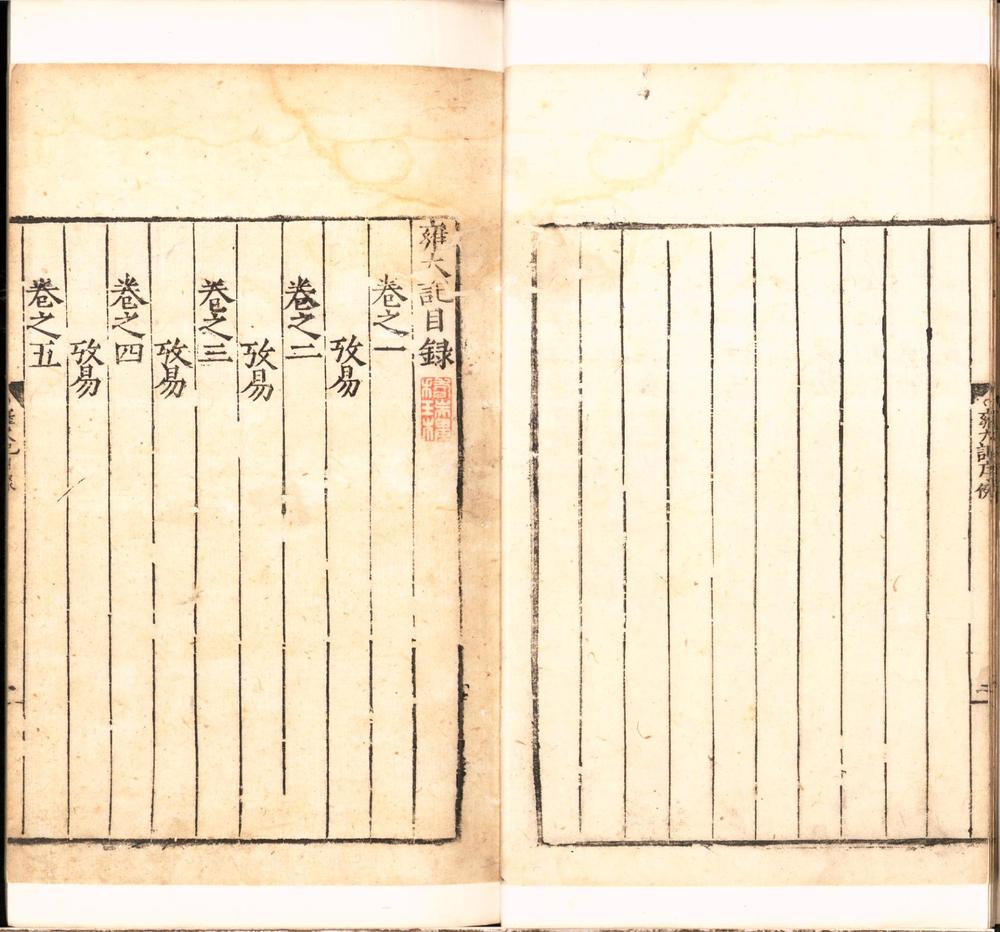 雍大記序例
二
雍大記目録
卷之一
攷易
卷之二
攷易
卷之三
攷易
卷之四
攷易
卷之五